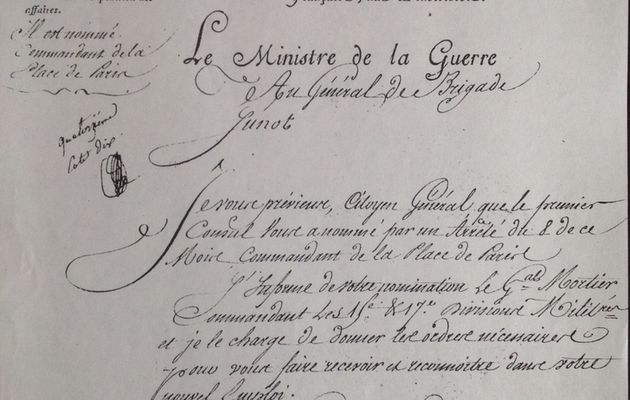 affaires.
Il est nommé
Commandant de la
Place de Paris
Le Ministre de la Guerre
Au Général de Brigade
Junot
quatorzieme
Cote dix
Je vous préviens, Citoyen Général que le premier
Consul vous a nommé par un Arrêté du 8 de ce
Mois Commandant de la Place de Paris
J'Informe de votre nomination le Gal Mortier
Commandant Les 15e. & 17.e Divisions Militres
et je le charge de donner les ordres nécéssaires
pour vous faire recevoir et reconnoitre dans votre
nouvel Emploi.